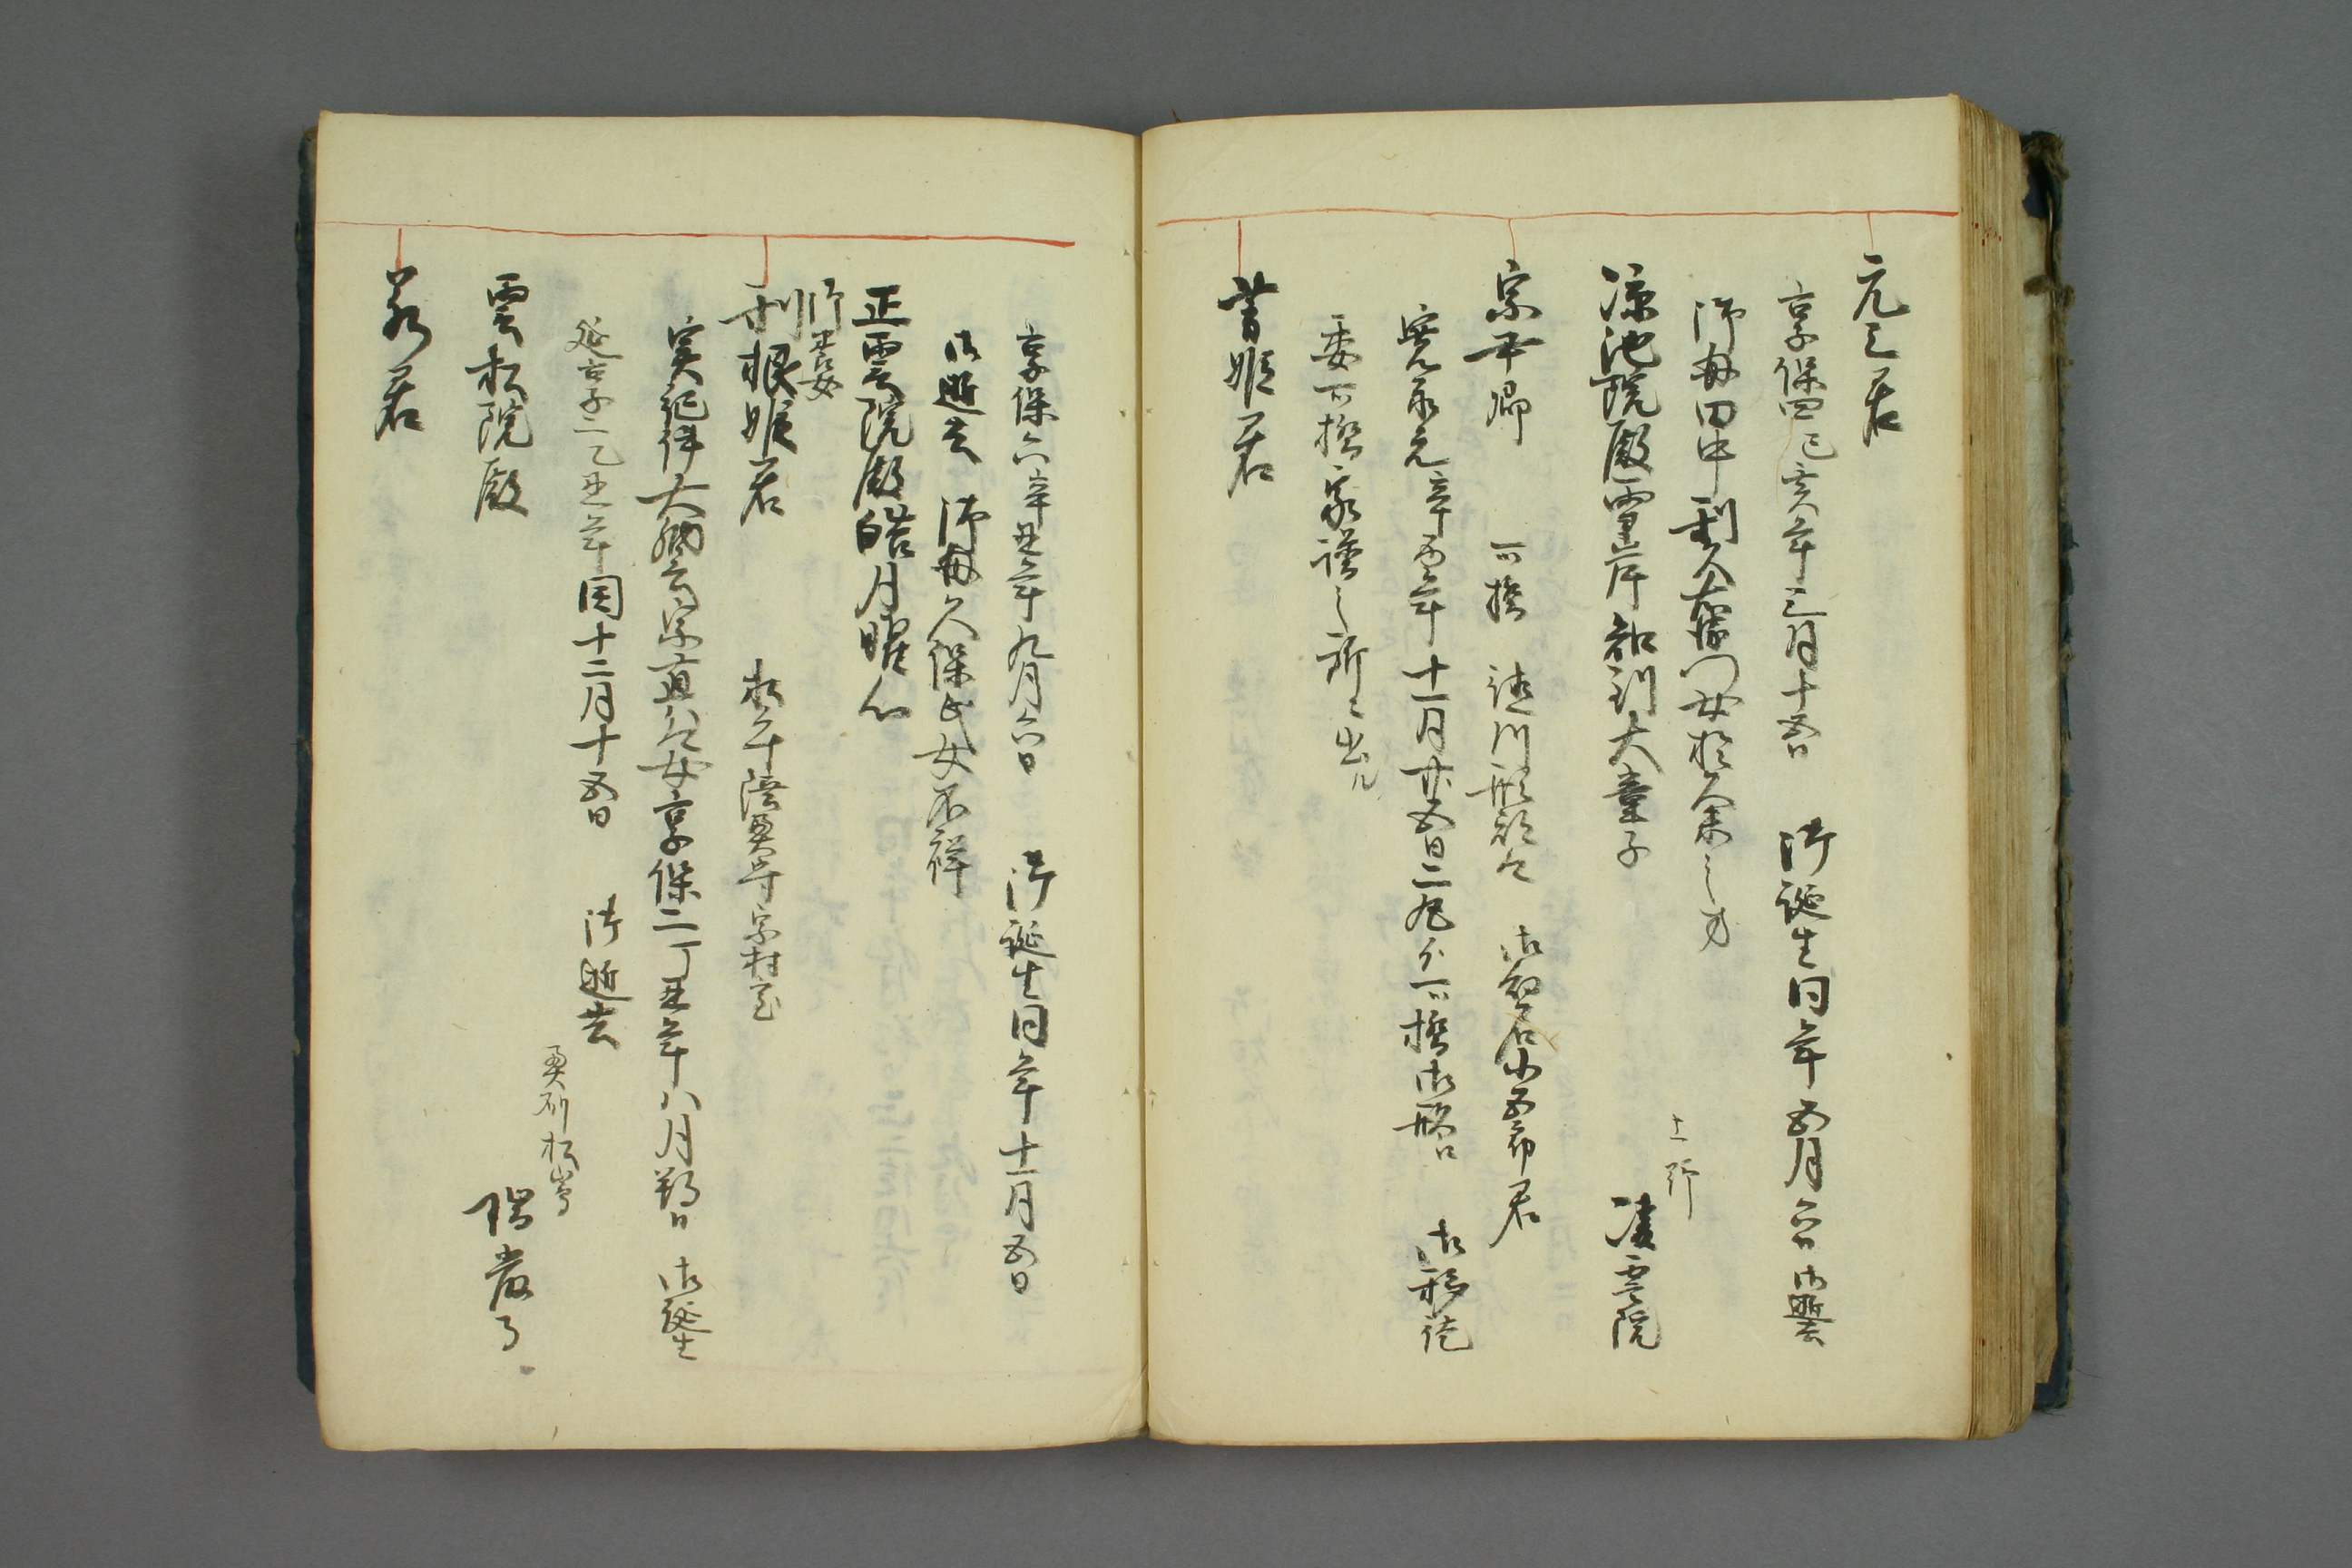 元三君
享保四己亥年三月十五日 御誕生同年五月六日御逝去
御母田中利右衛門女於久米之方
涼池院殿雪岸知到大童子
上野
凌雲院
宗尹卿 一橋 徳川刑部卿 御幼名小五郎君
寛保元辛酉年十一月廿五日二丸ゟ一橋御館江 御移徙
委一橋家譜之所ニ出ル
芳姫君
享保六辛丑年九月六日 御誕生同年十一月五日
御逝去 御母久保氏女不祥
正雲院殿皓月曜心
御養女
利根姫君 松平陸奥守宗村室
実紀伊大納言宗直公女享保二丁丑年八月朔日 御誕生
延享二乙丑年閏十二月十五日 御逝去
奥州松嶋
雲松院殿
瑞巌寺
若君